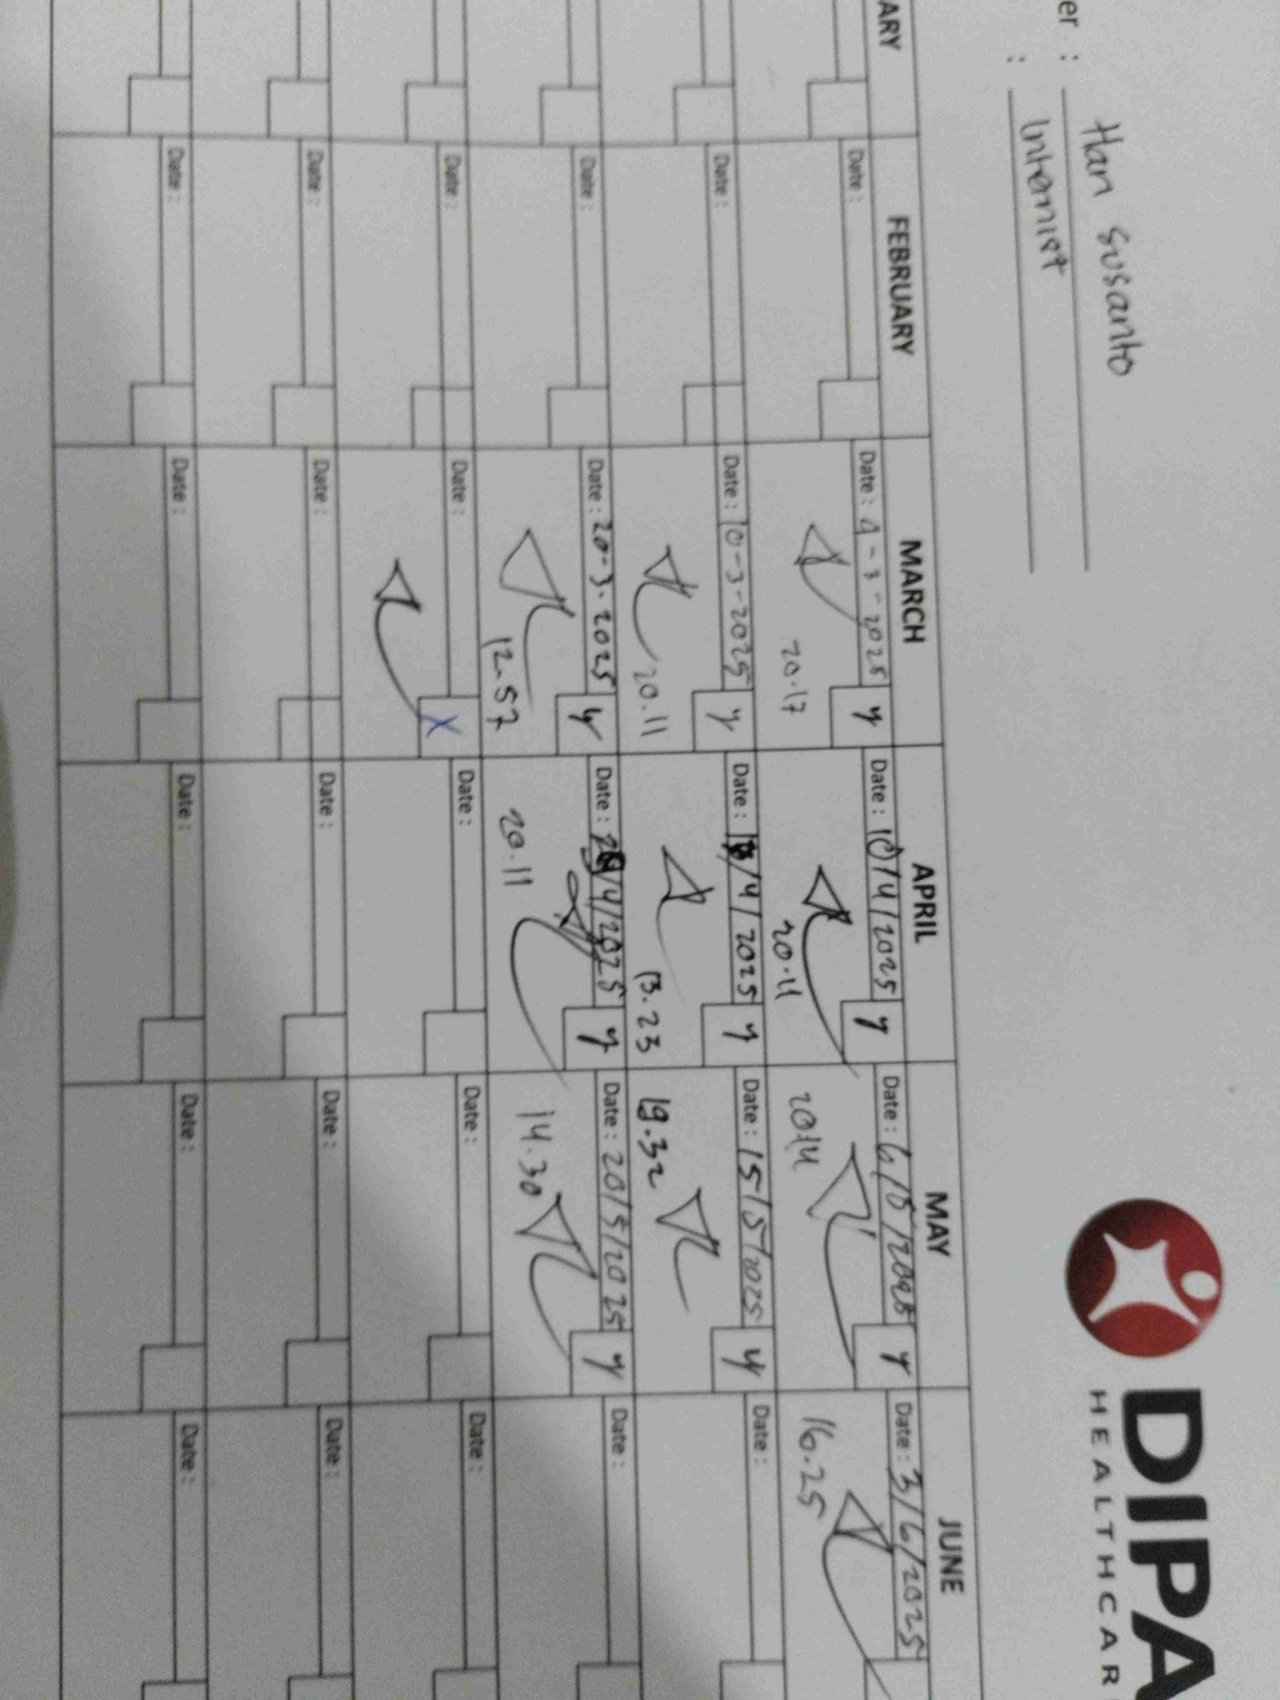 er : Han Susanto
: Internist
DIPA
HEALTHCAR
ARY FEBRUARY MARCH APRIL MAY JUNE
Date : Date : 4-3-2025 y Date : 10/4/2025 y Date : 6/5/2025 y Date : 3/6/2025
20.17 20.11 20.14 16.25
Date : Date : 10-3-2025 y Date : /4/2025 y Date : 15/5/2025 y Date :
20.11 13.23 19.32
Date : Date : 20-3-2025 y Date : /4/2025 y Date : 20/5/2025 y Date :
12.57 20.11 14.30
Date : Date : X Date : Date : Date :
Date : Date : Date : Date : Date :
Date : Date : Date : Date : Date :